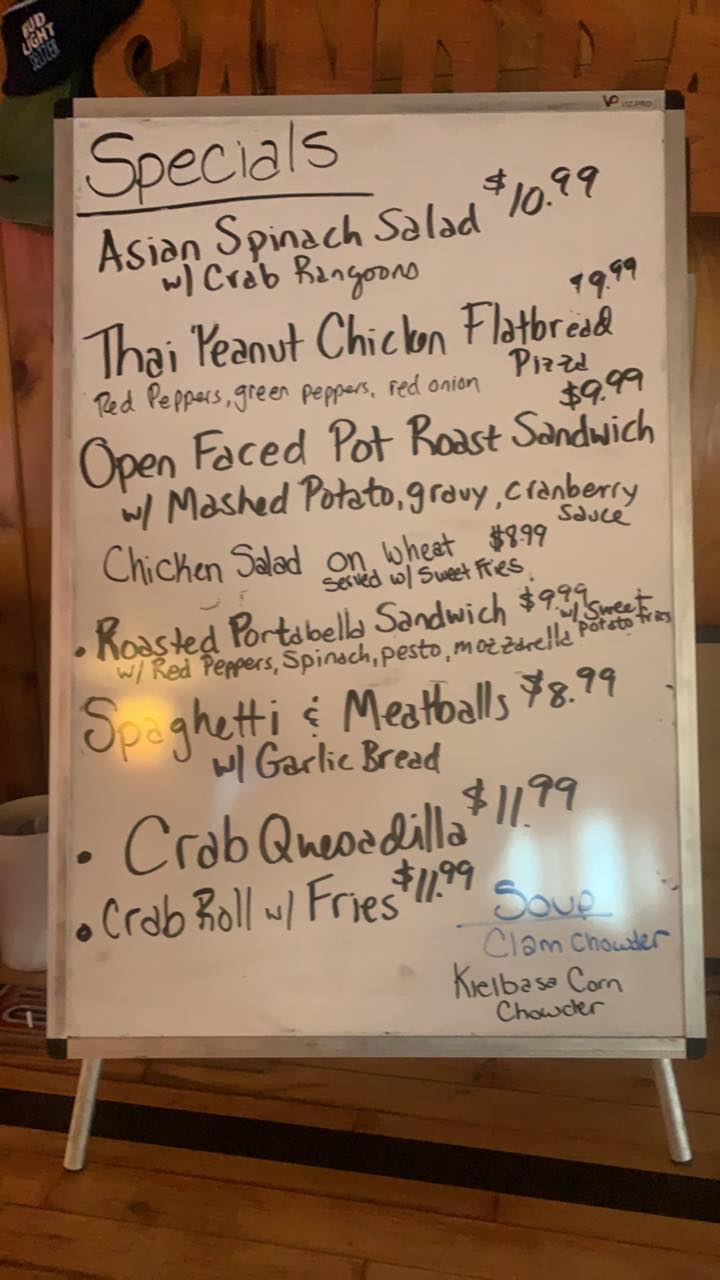 BUD
LIGHT
SELTZER
VIZ-PRO
Specials
Asian Spinach Salad $10.99
w/ Crab Rangoons
Thai Peanut Chicken Flatbread $9.99
Pizza
Red Peppers, green peppers, red onion
Open Faced Pot Roast Sandwich $9.99
w/ Mashed Potato, gravy, cranberry
Sauce
Chicken Salad on wheat $8.99
served w/ Sweet Fries
• Roasted Portabella Sandwich $9.99 w/ Sweet
w/ Red Peppers, Spinach, pesto, mozzarella Potato fries
Spaghetti & Meatballs $8.99
w/ Garlic Bread
• Crab Quesadilla $11.99
• Crab Roll w/ Fries $11.99
Soup
Clam Chowder
Kielbasa Corn
Chowder